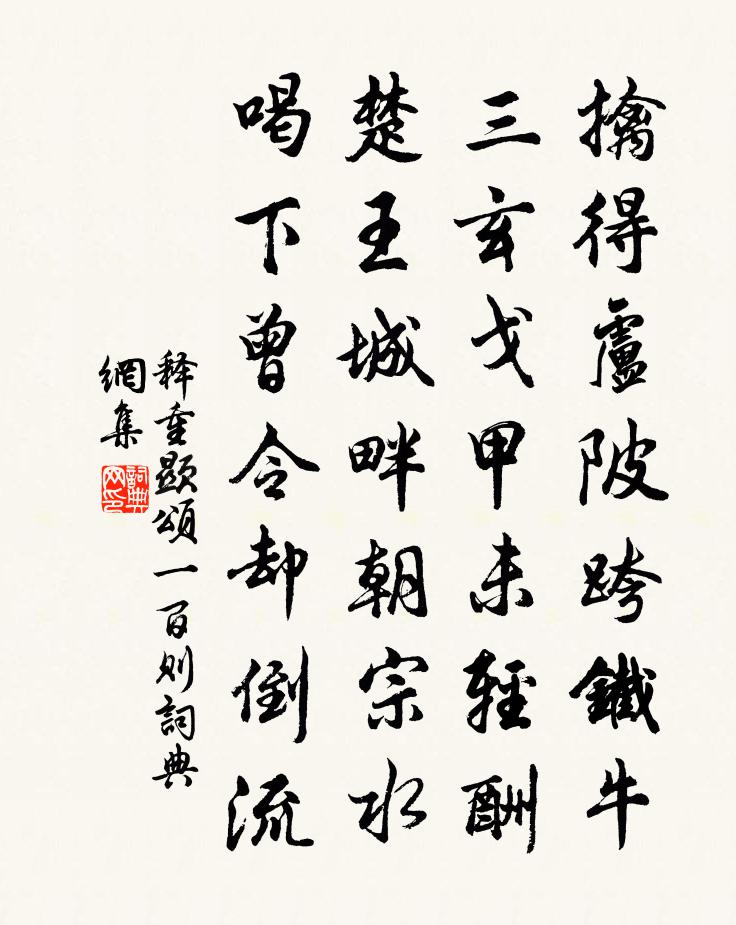 擒得盧陂跨鐵牛
三玄戈甲未輕酬
楚王城畔朝宗水
喝下曾令却倒流
释重顯頌一百则詞典
網集
詞典网印